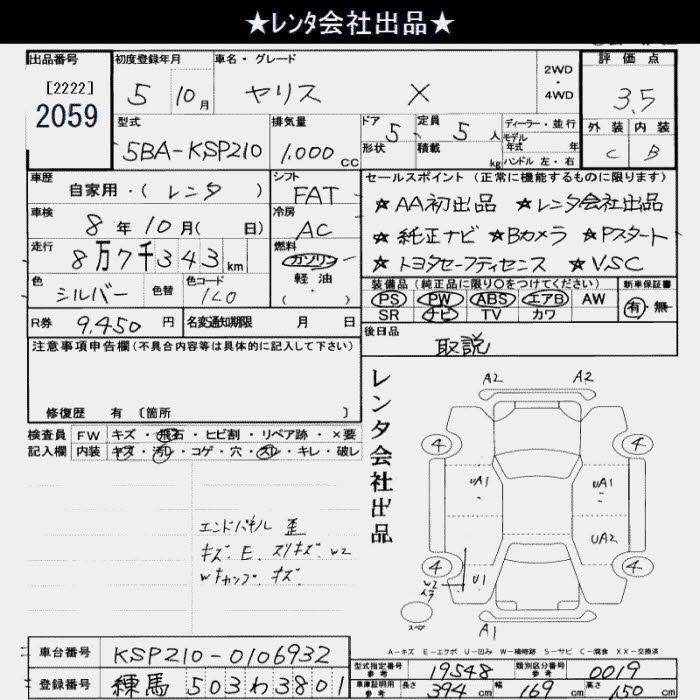 ★レンタ会社出品★
出品番号
[2222]
2059
初度登録年月
5 10月
車名・グレード
ヤリス X
2WD
・
4WD
評価点
3.5
外装 内装
C B
型式
5BA-KSP210
排気量
1,000 cc
ドア 5
形状
定員 5 人
積載 kg
ディーラー・並行
モデル
年式 年
ハンドル 左・右
車歴
自家用・(レンタ)
シフト
FAT
車検
8年10月( 日)
冷房
AC
走行
8万7千343km
燃料
ガソリン
軽油
色
シルバー
色替
色コード
1L0
R券 9,450 円
名変通知期限 月 日
セールスポイント (正常に機能するものに限ります)
★AA初出品 ★レンタ会社出品
★純正ナビ ★Bカメラ ★Pスタート
★トヨタセーフティセンス ★VSC
装備品 (純正品に限り○をつけてください)
新車保証書
PS PW ABS エアB AW
SR ナビ TV カワ
有・無
後日品
取説
注意事項申告欄 (不具合内容等は具体的に記入して下さい)
修復歴 有 〔箇所 〕
検査員
記入欄
FW キズ・飛石・ヒビ割・リペア跡・×要
内装 キズ・汚レ・コゲ・穴・スレ・キレ・破レ
エンドパネル 歪
キズ.E.スリキズ.W2
Wキャップ.キズ
レンタ会社出品
A2 A2
4 4
UA1 UA1
UA2
4 4
W2
U1
スペア
A1
A-キズ E-エクボ U-凹み W-補修跡 S-サビ C-腐食 XX-交換済
車台番号 KSP210-0106932
登録番号 練馬 503わ3801
型式指定番号
参考
19548
類別区分番号
参考
0019
車庫証明用
参考
長さ 394 cm 幅 169 cm 高さ 150 cm